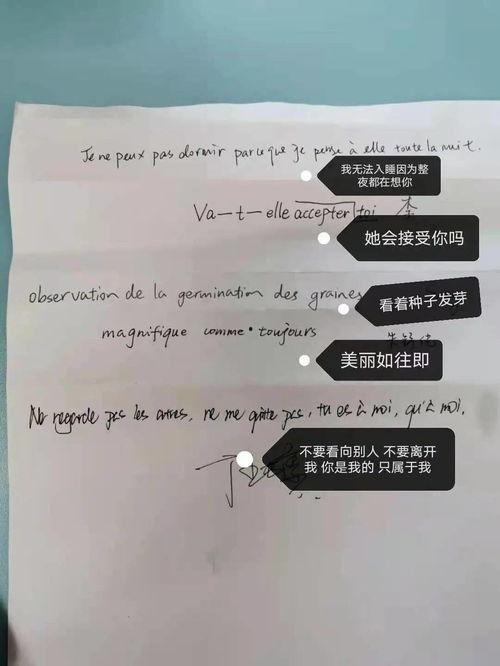 Je ne peux pas dormir parce que je pense à elle toute la nuit.
我无法入睡因为整
夜都在想你
Va-t-elle accepter toi 李
她会接受你吗
observation de la germination des graines
看着种子发芽
magnifique comme toujours
美丽如往即
Ne regarde pas les autres, ne me quitte pas, tu es à moi, qu'à moi.
不要看向别人 不要离开
我 你是我的 只属于我